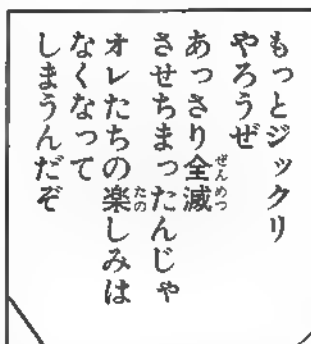 もっとジックリ
やろうぜ
あっさり全滅
させちまったんじゃ
オレたちの楽しみは
なくなって
しまうんだぞ